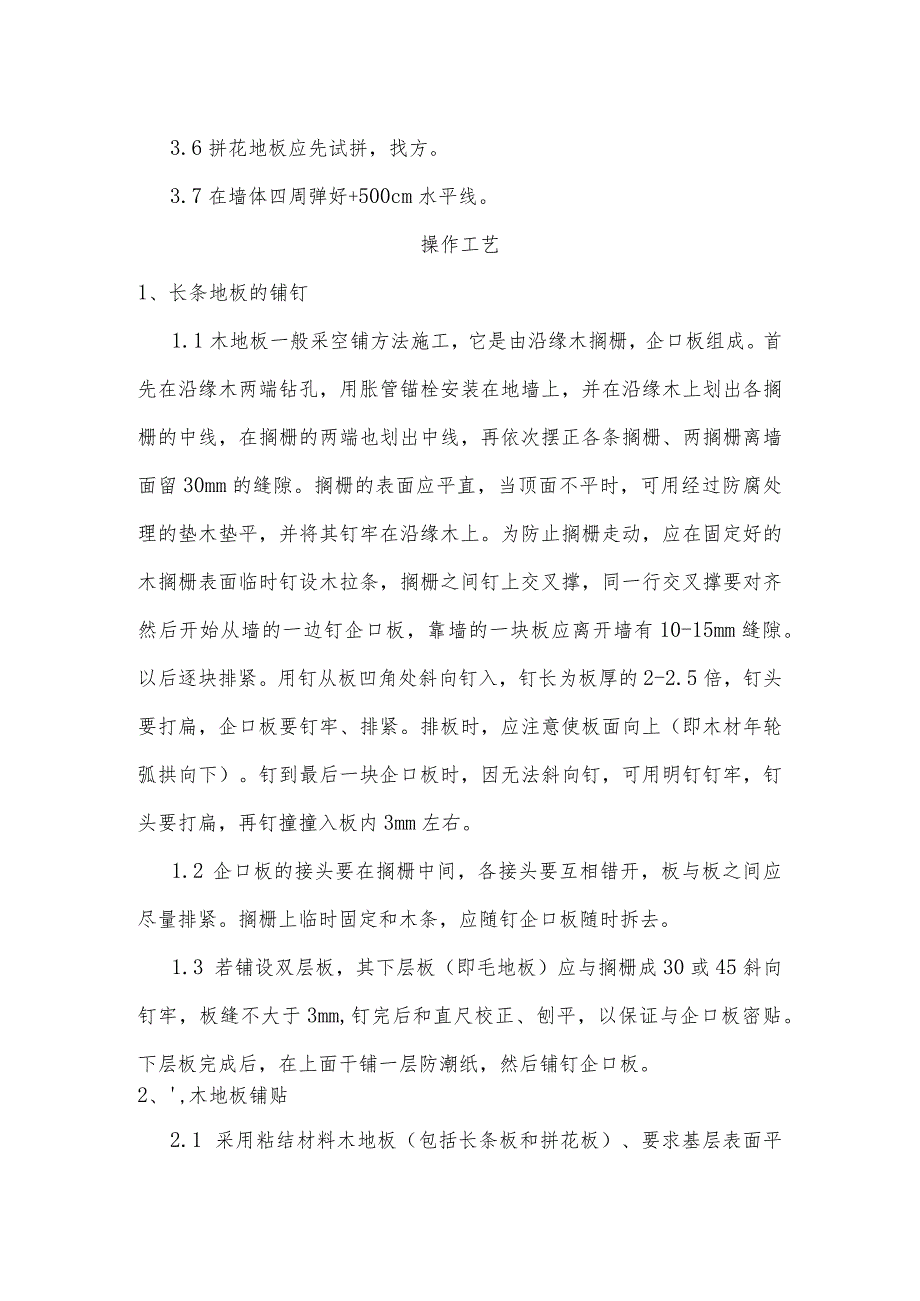 3.6 拼花地板应先试拼，找方。
3.7 在墙体四周弹好+500cm 水平线。
操作工艺
1、长条地板的铺钉
1.1 木地板一般采空铺方法施工，它是由沿缘木搁栅，企口板组成。首
先在沿缘木两端钻孔，用胀管锚栓安装在地墙上，并在沿缘木上划出各搁
栅的中线，在搁栅的两端也划出中线，再依次摆正各条搁栅、两搁栅离墙
面留 30mm 的缝隙。搁栅的表面应平直，当顶面不平时，可用经过防腐处
理的垫木垫平，并将其钉牢在沿缘木上。为防止搁栅走动，应在固定好的
木搁栅表面临时钉设木拉条，搁栅之间钉上交叉撑，同一行交叉撑要对齐
然后开始从墙的一边钉企口板，靠墙的一块板应离开墙有 10-15mm 缝隙。
以后逐块排紧。用钉从板凹角处斜向钉入，钉长为板厚的 2-2.5 倍，钉头
要打扁，企口板要钉牢、排紧。排板时，应注意使板面向上（即木材年轮
弧拱向下）。钉到最后一块企口板时，因无法斜向钉，可用明钉钉牢，钉
头要打扁，再钉撞撞入板内 3mm 左右。
1.2 企口板的接头要在搁栅中间，各接头要互相错开，板与板之间应
尽量排紧。搁栅上临时固定和木条，应随钉企口板随时拆去。
1.3 若铺设双层板，其下层板（即毛地板）应与搁栅成 30 或 45 斜向
钉牢，板缝不大于 3mm,钉完后和直尺校正、刨平，以保证与企口板密贴。
下层板完成后，在上面干铺一层防潮纸，然后铺钉企口板。
2、',木地板铺贴
2.1 采用粘结材料木地板（包括长条板和拼花板）、要求基层表面平